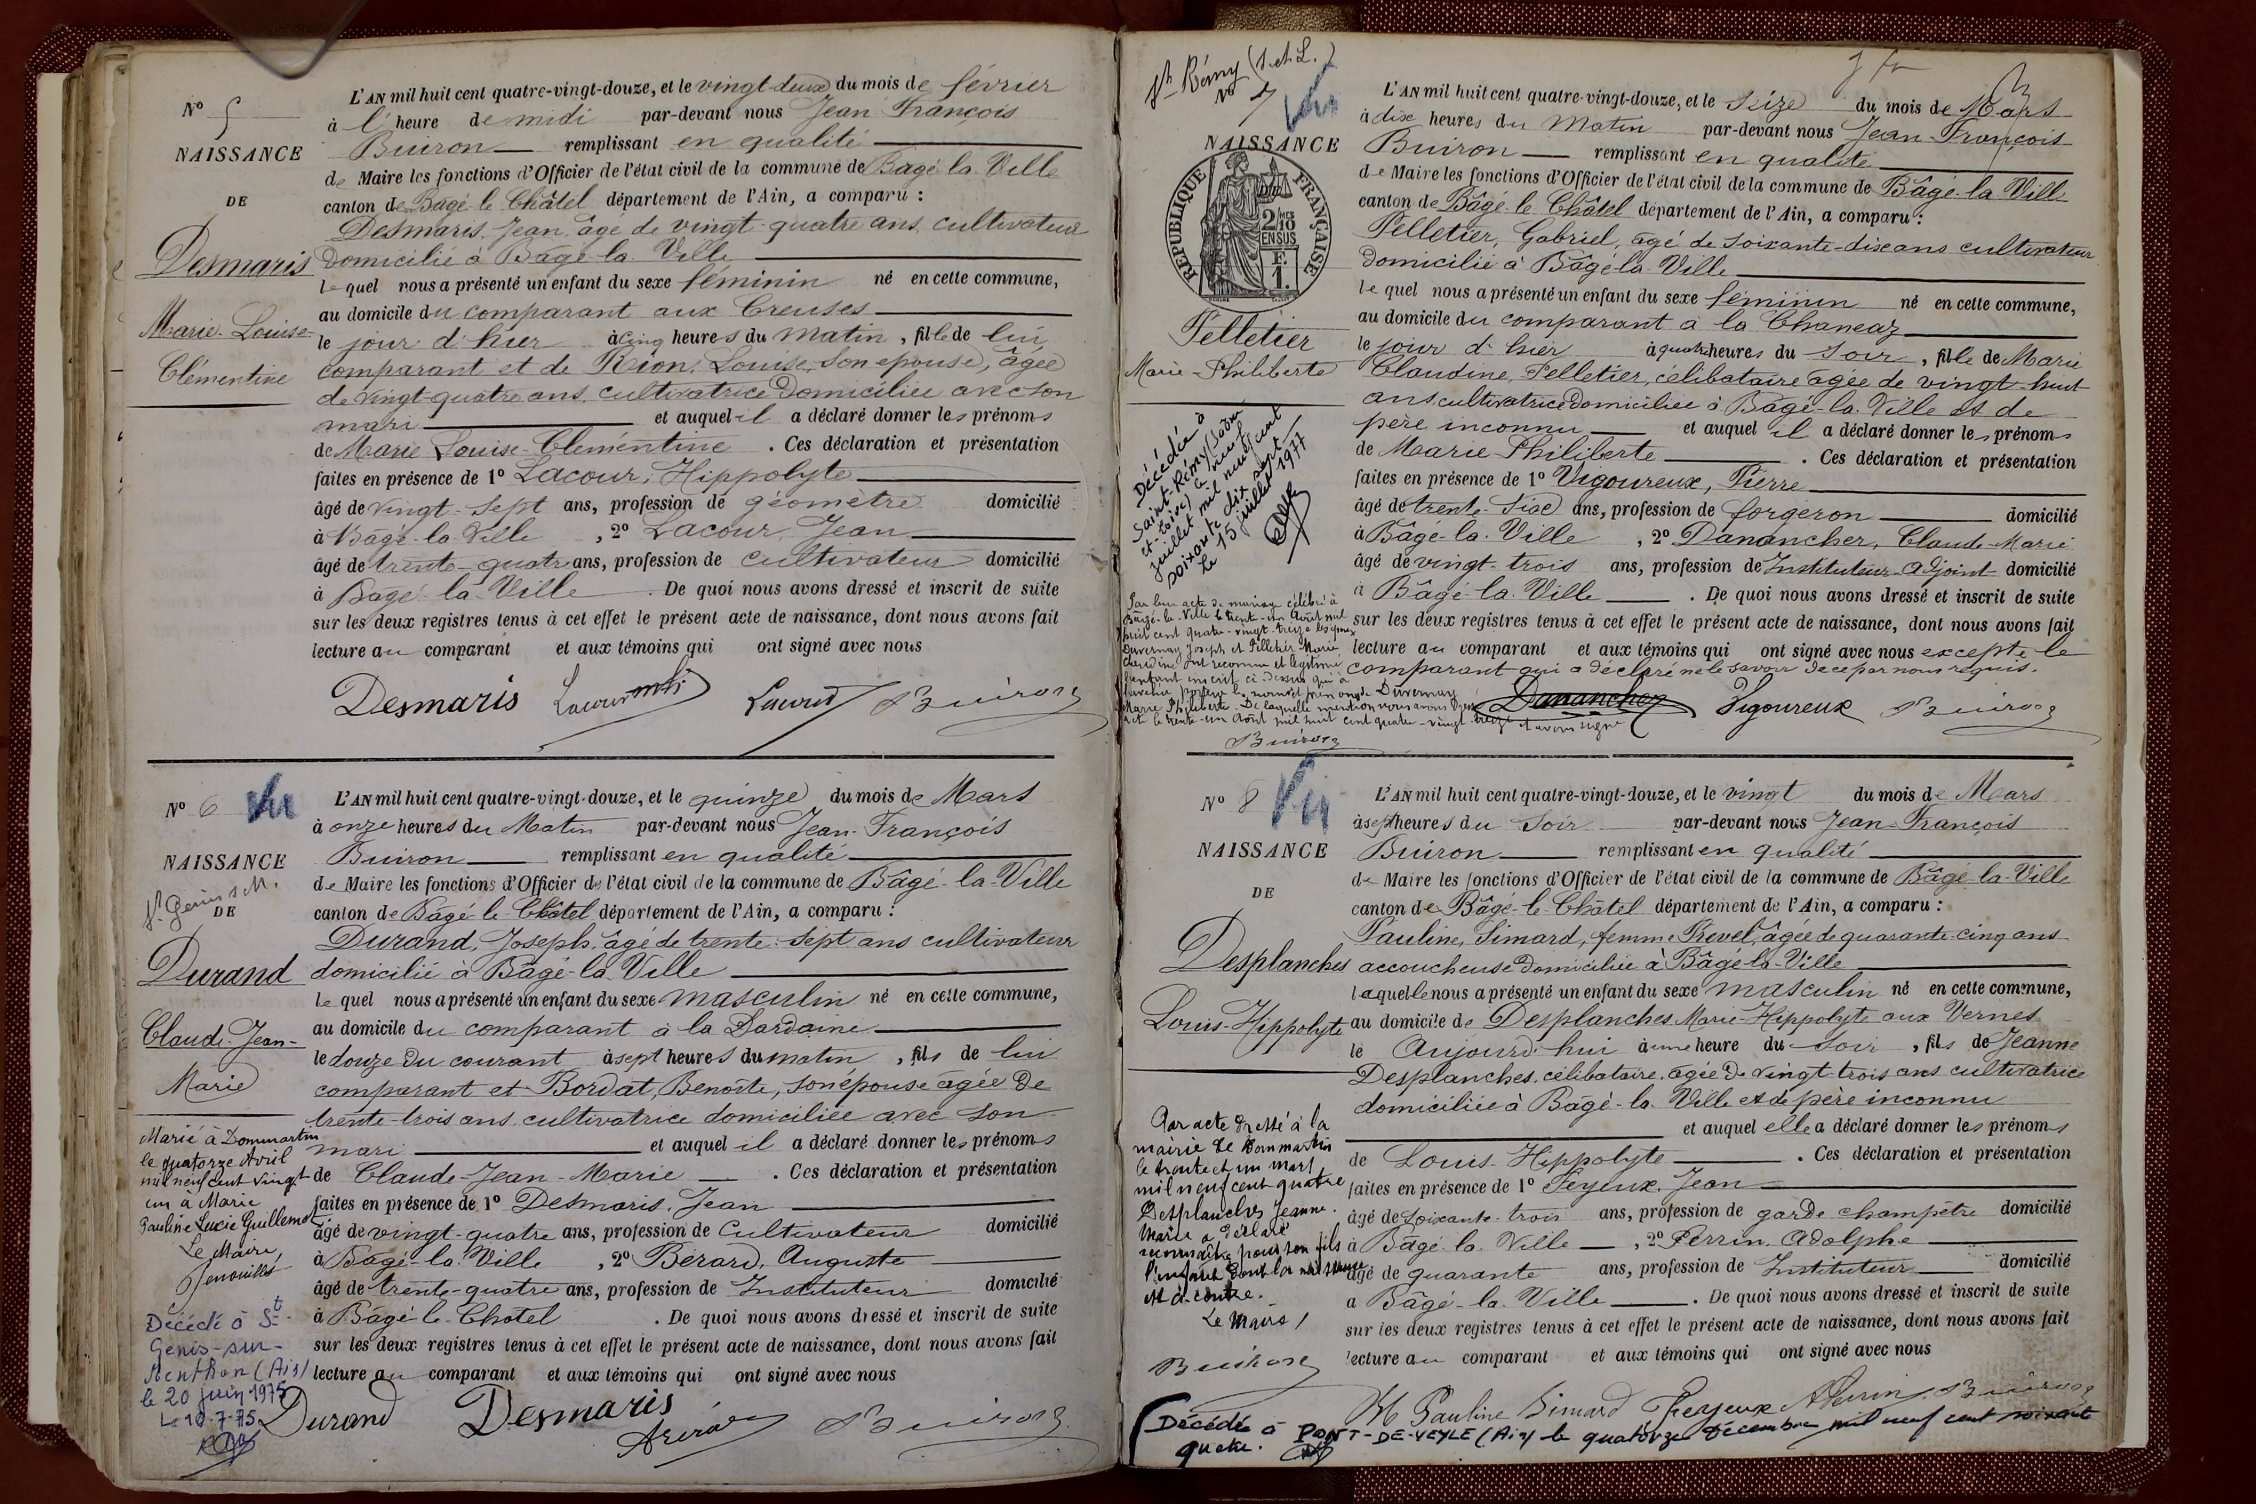 N° 5
NAISSANCE
DE
Desmaris
Marie-Louise-
Clémentine
L'AN mil huit cent quatre-vingt-douze, et le vingt-deux du mois de février
à l'heure de midi par-devant nous Jean François
Buiron remplissant en qualité
de Maire les fonctions d'Officier de l'état civil de la commune de Bagé-la-Ville
canton de Bagé-le-Châtel département de l'Ain, a comparu :
Desmaris, Jean, âgé de vingt-quatre ans, cultivateur
domicilié à Bagé-la-Ville
lequel nous a présenté un enfant du sexe féminin né en cette commune,
au domicile du comparant aux Creuses
le jour d'hier à cinq heures du matin, fille de lui
comparant et de Rion, Louise, son épouse, âgée
de vingt-quatre ans, cultivatrice domiciliée avec son
mari et auquel il a déclaré donner les prénoms
de Marie Louise-Clémentine . Ces déclaration et présentation
faites en présence de 1° Lacour, Hippolyte
âgé de vingt-sept ans, profession de géomètre domicilié
à Bâgé-la-Ville , 2° Lacour, Jean
âgé de trente-quatre ans, profession de cultivateur domicilié
à Bagé-la-Ville . De quoi nous avons dressé et inscrit de suite
sur les deux registres tenus à cet effet le présent acte de naissance, dont nous avons fait
lecture au comparant et aux témoins qui ont signé avec nous
Desmaris Lacour Lacour Buiron
N° 6 Vu
NAISSANCE
St Genis s M.
DE
Durand
Claude-Jean-
Marie
Marié à Dommartin
le quatorze Avril
mil neuf cent vingt-
un à Marie
Pauline Lucie Guillemot
Le Maire,
Décédé à St
Genis-sur-
Menthon (Ain)
le 20 juin 1975
Le 10-7-75
L'AN mil huit cent quatre-vingt-douze, et le quinze du mois de Mars
à onze heures du Matin par-devant nous Jean-François
Buiron remplissant en qualité
de Maire les fonctions d'Officier de l'état civil de la commune de Bâgé-la-Ville
canton de Bâgé-le-Châtel département de l'Ain, a comparu :
Durand, Joseph, âgé de trente-sept ans cultivateur
domicilié à Bâgé-la-Ville
lequel nous a présenté un enfant du sexe masculin né en cette commune,
au domicile du comparant à la Dardaine
le douze du courant à sept heures du matin, fils de lui
comparant et Bordat, Benoîte, son épouse âgée de
trente-trois ans cultivatrice domiciliée avec son
mari et auquel il a déclaré donner les prénoms
de Claude-Jean-Marie . Ces déclaration et présentation
faites en présence de 1° Desmaris, Jean
âgé de vingt-quatre ans, profession de Cultivateur domicilié
à Bagé-la-Ville , 2° Bérard, Auguste
âgé de trente-quatre ans, profession de Instituteur domicilié
à Bâgé-le-Châtel . De quoi nous avons dressé et inscrit de suite
sur les deux registres tenus à cet effet le présent acte de naissance, dont nous avons fait
lecture au comparant et aux témoins qui ont signé avec nous
Durand Desmaris Buiron
St Rémy (S. et L.)
N° 7 Vu
NAISSANCE
RÉPUBLIQUE FRANÇAISE
2/10mes
EN SUS
E.
1.
Pelletier
Marie-Philiberte
Décédée à
Saint-Rémy (Saône-
et-Loire) le neuf
juillet mil neuf cent
soixante dix sept
Le 15 juillet 1977
Par leur acte de mariage célébré à
Bâgé-la-Ville le trente-un Août mil
huit cent quatre-vingt-treize les époux
Duvernay Joseph et Pelletier Marie
Claudine ont reconnu et légitimé
l'enfant inscrit ci-dessus qui à
l'avenir portera les nom et prénoms de Duvernay
Marie Philiberte. De laquelle mention nous avons dressé
acte le trente-un Août mil huit cent quatre-vingt-treize et avons signé
Buiron
L'AN mil huit cent quatre-vingt-douze, et le seize du mois de Mars
à dix heures du Matin par-devant nous Jean-François
Buiron remplissant en qualité
de Maire les fonctions d'Officier de l'état civil de la commune de Bâgé-la-Ville
canton de Bâgé-le-Châtel département de l'Ain, a comparu :
Pelletier, Gabriel, âgé de soixante-dix ans cultivateur
domicilié à Bâgé-la-Ville
lequel nous a présenté un enfant du sexe féminin né en cette commune,
au domicile du comparant à la Chaneaz
le jour d'hier à quatre heures du soir, fille de Marie
Claudine Pelletier, célibataire âgée de vingt-huit
ans cultivatrice domiciliée à Bâgé-la-Ville et de
père inconnu et auquel il a déclaré donner les prénoms
de Marie Philiberte . Ces déclaration et présentation
faites en présence de 1° Vigoureux, Pierre
âgé de trente-six ans, profession de forgeron domicilié
à Bâgé-la-Ville , 2° Danancher, Claude-Marie
âgé de vingt-trois ans, profession de Instituteur-adjoint domicilié
à Bâgé-la-Ville . De quoi nous avons dressé et inscrit de suite
sur les deux registres tenus à cet effet le présent acte de naissance, dont nous avons fait
lecture au comparant et aux témoins qui ont signé avec nous excepté le
comparant qui a déclaré ne le savoir de ce par nous requis.
Danancher Vigoureux Buiron
N° 8 Vu
NAISSANCE
DE
Desplanches
Louis-Hippolyte
Par acte dressé à la
mairie de Dommartin
le trente et un mars
mil neuf cent quatre
Desplanches Jeanne
Marie a déclaré
reconnaître pour son fils
l'enfant dont la naissance
est ci-contre.
Le Maire,
Buiron
L'AN mil huit cent quatre-vingt-douze, et le vingt du mois de Mars
à sept heures du soir par-devant nous Jean-François
Buiron remplissant en qualité
de Maire les fonctions d'Officier de l'état civil de la commune de Bâgé-la-Ville
canton de Bâgé-le-Châtel département de l'Ain, a comparu :
Pauline, Simard, femme Prevel, âgée de quarante-cinq ans
accoucheuse domiciliée à Bâgé-la-Ville
laquelle nous a présenté un enfant du sexe masculin né en cette commune,
au domicile de Desplanches Marie-Hippolyte aux Vernes
le Aujourd'hui à une heure du soir, fils de Jeanne
Desplanches, célibataire, âgée de vingt-trois ans cultivatrice
domiciliée à Bâgé-la-Ville et de père inconnu
et auquel elle a déclaré donner les prénoms
de Louis-Hippolyte . Ces déclaration et présentation
faites en présence de 1° Feyeux, Jean
âgé de soixante-trois ans, profession de garde champêtre domicilié
à Bâgé-la-Ville , 2° Perrin, Adolphe
âgé de quarante ans, profession de Instituteur domicilié
à Bâgé-la-Ville . De quoi nous avons dressé et inscrit de suite
sur les deux registres tenus à cet effet le présent acte de naissance, dont nous avons fait
lecture au comparant et aux témoins qui ont signé avec nous
Pauline Simard Feyeux A Perrin Buiron
Décédé à PONT-DE-VEYLE (Ain) le quatorze décembre mil neuf cent soixante
quatre.